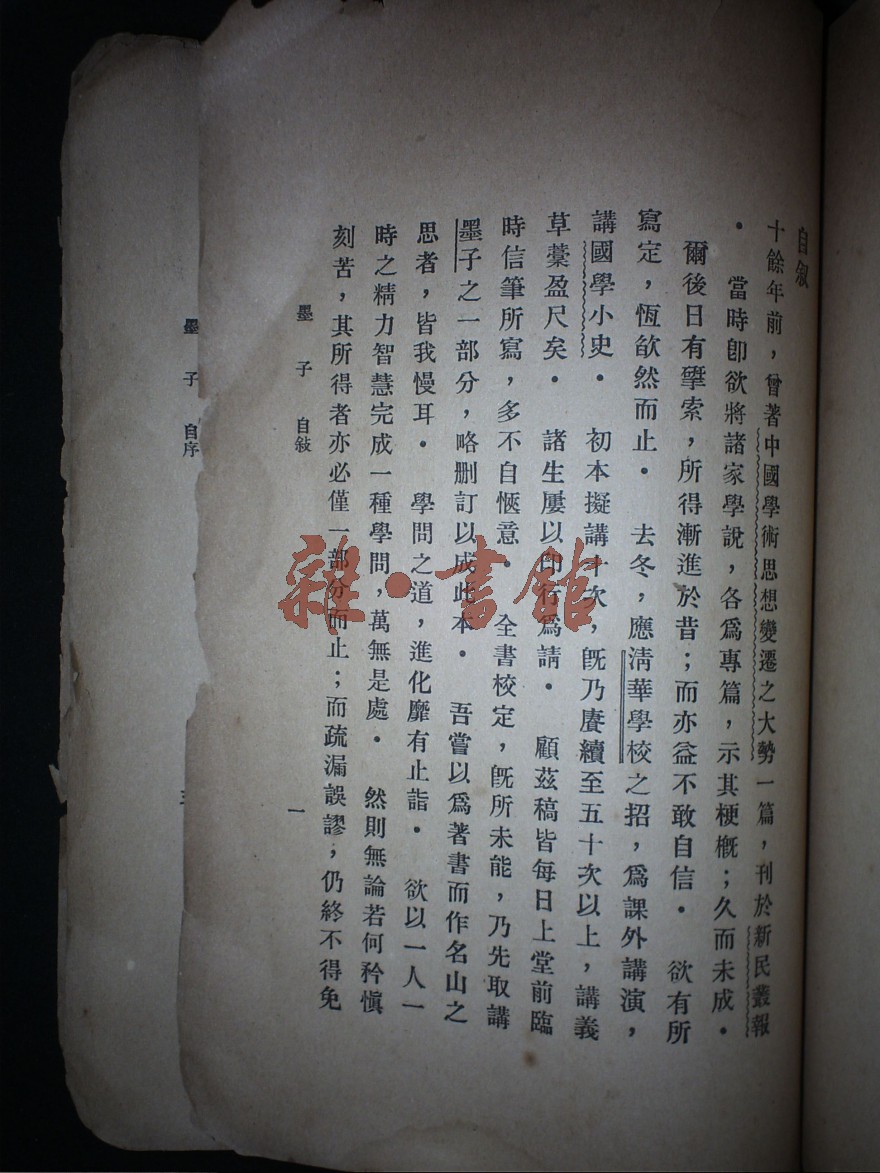 自敍
十餘年前，曾著中國學術思想變遷之大勢一篇，刊於新民叢報
． 當時卽欲將諸家學說，各爲專篇，示其梗概；久而未成．
爾後日有擘索，所得漸進於昔；而亦益不敢自信． 欲有所
寫定，恆欿然而止． 去冬，應清華學校之招，爲課外講演，
講國學小史． 初本擬講十次，旣乃賡續至五十次以上，講義
草藁盈尺矣． 諸生屢以印行爲請． 顧茲稿皆每日上堂前臨
時信筆所寫，多不自愜意． 全書校定，旣所未能，乃先取講
墨子之一部分，略删訂以成此本． 吾嘗以爲著書而作名山之
思者，皆我慢耳． 學問之道，進化靡有止詣． 欲以一人一
時之精力智慧完成一種學問，萬無是處． 然則無論若何矜愼
刻苦，其所得者亦必僅一部分而止；而疏漏誤謬，仍終不得免
墨子 自敍 一
墨子 自序
雜·書館